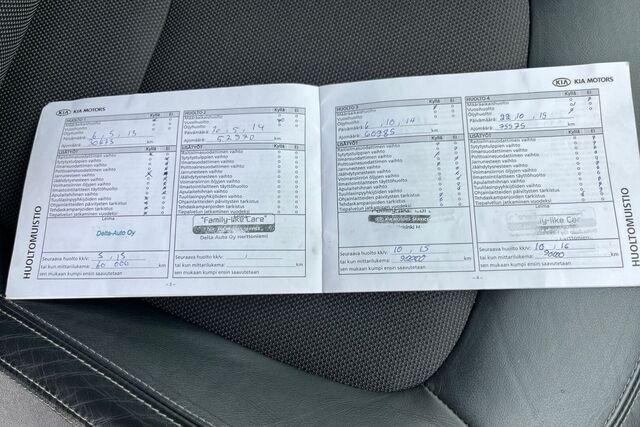 KIA KIA MOTORS
HUOLTO 1 Kyllä Ei
Määräaikaishuolto
Vuosihuolto
Öljyhuolto
Päivämäärä: 6 , 5 , 13
Ajomäärä: 30673 km
LISÄTYÖT Kyllä Ei
Raitisilmasuodattimen vaihto
Sytytystulppien vaihto
Ilmansuodattimen vaihto
Polttoainesuodattimen vaihto
Jarrunesteen vaihto
Jäähdytysnesteen vaihto
Voimansiirron öljyjen vaihto
Ilmastointilaitteen täyttöhuolto
Apulaitehihnan vaihto
Tuulilasinpyyhkijöiden vaihto
Ohjainlaitteiden päivitysten tarkistus
Tehdaskampanjoiden tarkistus
Tiepalvelun jatkaminen vuodeksi
Leima
Delta-Auto Oy
Seuraava huolto kk/v: 5 , 15
tai kun mittarilukema: 60 000 km
sen mukaan kumpi ensin saavutetaan
- 3 -
HUOLTOMUISTIO
HUOLTO 2 Kyllä Ei
Määräaikaishuolto
Vuosihuolto
Öljyhuolto
Päivämäärä: 20 , 5 , 14
Ajomäärä: 52970 km
LISÄTYÖT Kyllä Ei
Raitisilmasuodattimen vaihto
Sytytystulppien vaihto
Ilmansuodattimen vaihto
Polttoainesuodattimen vaihto
Jarrunesteen vaihto
Jäähdytysnesteen vaihto
Voimansiirron öljyjen vaihto
Ilmastointilaitteen täyttöhuolto
Apulaitehihnan vaihto
Tuulilasinpyyhkijöiden vaihto
Ohjainlaitteiden päivitysten tarkistus
Tehdaskampanjoiden tarkistus
Tiepalvelun jatkaminen vuodeksi
"Family-like Care"
Delta Auto Oy Herttoniemi
Seuraava huolto kk/v:
tai kun mittarilukema: km
sen mukaan kumpi ensin saavutetaan
KIA KIA MOTORS
HUOLTO 3 Kyllä Ei
Määräaikaishuolto
Vuosihuolto
Öljyhuolto
Päivämäärä: 6 , 10 , 14
Ajomäärä: 60985 km
LISÄTYÖT Kyllä Ei
Raitisilmasuodattimen vaihto
Sytytystulppien vaihto
Ilmansuodattimen vaihto
Polttoainesuodattimen vaihto
Jarrunesteen vaihto
Jäähdytysnesteen vaihto
Voimansiirron öljyjen vaihto
Ilmastointilaitteen täyttöhuolto
Apulaitehihnan vaihto
Tuulilasinpyyhkijöiden vaihto
Ohjainlaitteiden päivitysten tarkistus
Tehdaskampanjoiden tarkistus
Tiepalvelun jatkaminen vuodeksi
Seuraava huolto kk/v: 10 , 15
tai kun mittarilukema: 90000 km
sen mukaan kumpi ensin saavutetaan
HUOLTO 4 Kyllä Ei
Määräaikaishuolto
Vuosihuolto
Öljyhuolto
Päivämäärä: 22 , 10 , 15
Ajomäärä: 75575 km
LISÄTYÖT Kyllä Ei
Raitisilmasuodattimen vaihto
Sytytystulppien vaihto
Ilmansuodattimen vaihto
Polttoainesuodattimen vaihto
Jarrunesteen vaihto
Jäähdytysnesteen vaihto
Voimansiirron öljyjen vaihto
Ilmastointilaitteen täyttöhuolto
Apulaitehihnan vaihto
Tuulilasinpyyhkijöiden vaihto
Ohjainlaitteiden päivitysten tarkistus
Tehdaskampanjoiden tarkistus
Tiepalvelun jatkaminen vuodeksi
ily-like Car
Seuraava huolto kk/v: 10 , 16
tai kun mittarilukema: 90000 km
sen mukaan kumpi ensin saavutetaan
- 4 -
HUOLTOMUISTIO